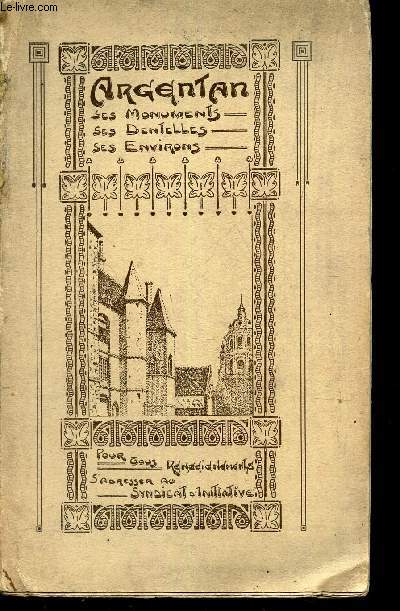 Le-livre.com
ARGENTAN
SES MONUMENTS
SES DENTELLES
SES ENVIRONS
POUR TOUS RENSEIGNEMENTS
S'ADRESSER AU
SYNDICAT D'INITIATIVE